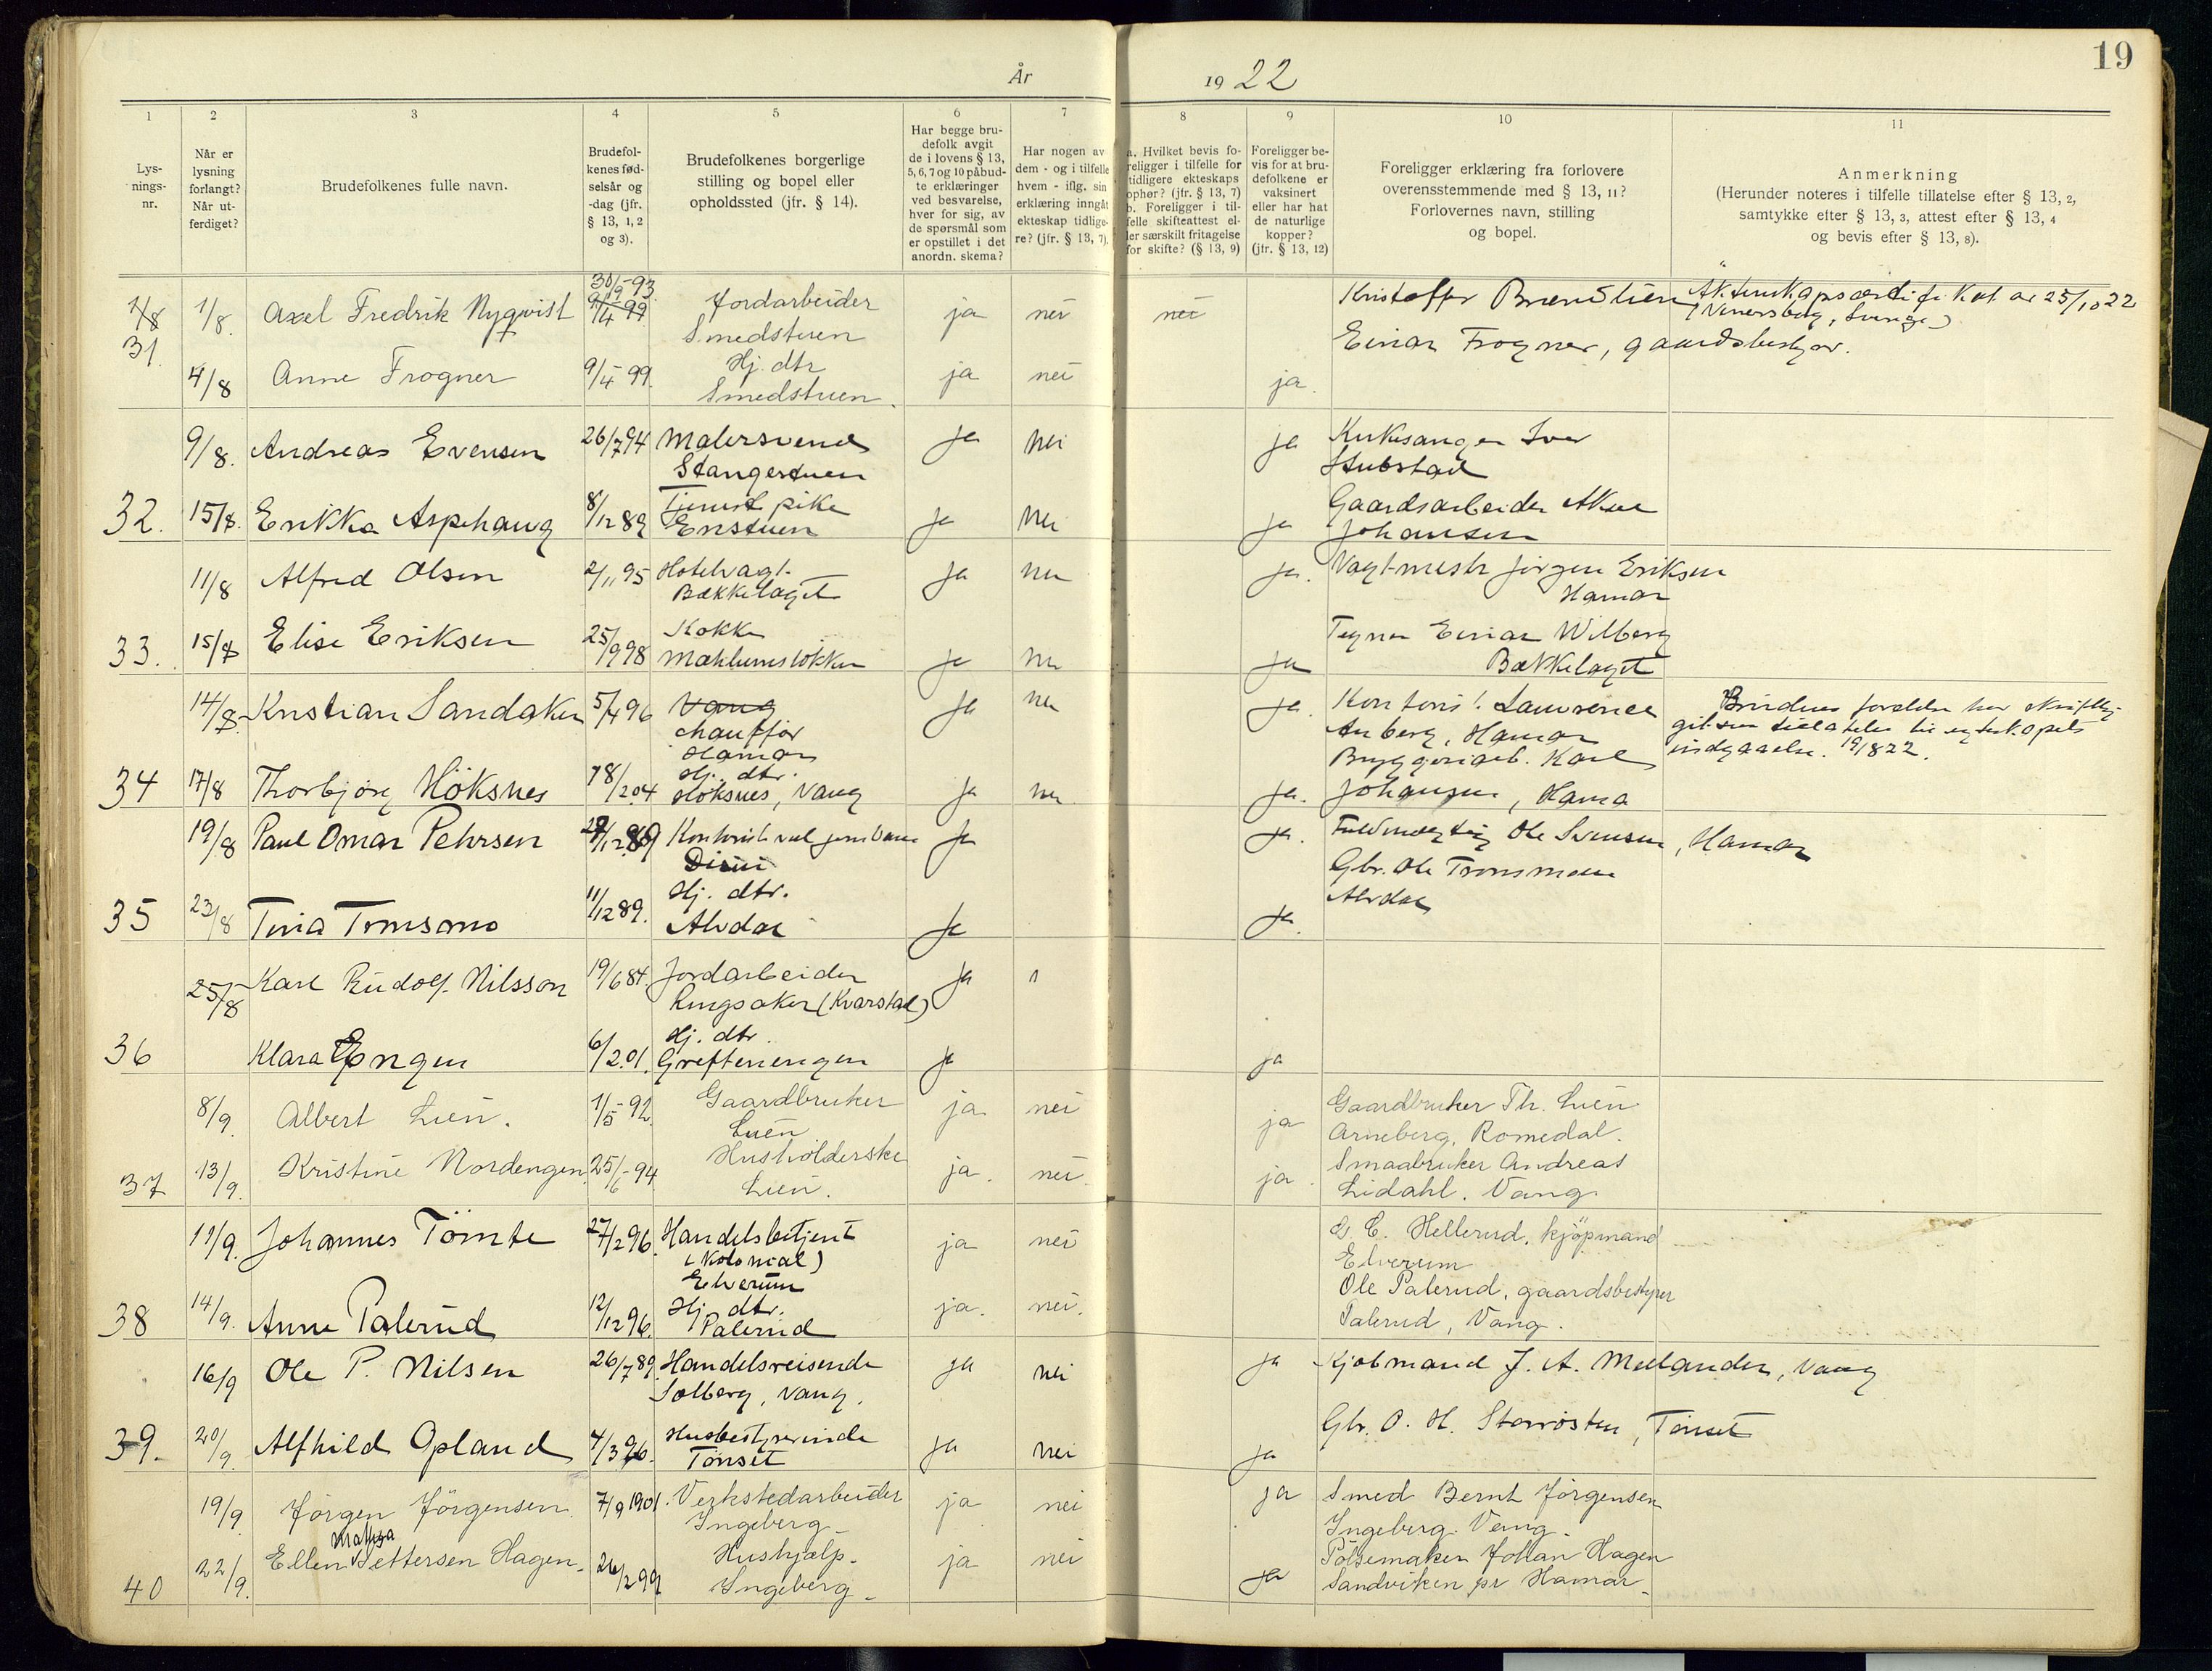 19
År 1922
1 2 3 4 5 6 7 8 9 10 11
Lys-
nings-
nr.
Når er
lysning
forlangt?
Når ut-
ferdiget?
Brudefolkenes fulle navn.
Brudefol-
kenes fød-
selsår og
-dag (jfr.
§ 13, 1, 2
og 3).
Brudefolkenes borgerlige
stilling og bopel eller
opholdssted (jfr. § 14).
Har begge bru-
defolk avgit
de i lovens § 13,
5, 6, 7 og 10 påbud-
te erklæringer
ved besvarelse,
hver for sig, av
de spørsmål som
er opstillet i det
anordn. skema?
Har nogen av
dem - og i tilfelle
hvem - iflg. sin
erklæring inngåt
ekteskap tidlige-
re? (jfr. § 13, 7).
a. Hvilket bevis fo-
religger i tilfelle for
tidligere ekteskaps
ophør? (jfr. § 13, 7)
b. Foreligger i til-
felle skifteattest el-
ler særskilt fritagelse
for skifte? (§ 13, 9)
Foreligger be-
vis for at bru-
defolkene er
vaksinert
eller har hat
de naturlige
kopper?
(jfr. § 13, 12)
Foreligger erklæring fra forlovere
overensstemmende med § 13, 11?
Forlovernes navn, stilling
og bopel.
Anmerkning
(Herunder noteres i tilfelle tillatelse efter § 13, 2,
samtykke efter § 13, 3, attest efter § 13, 4
og bevis efter § 13, 8).
30/9-93
1/8 Axel Fredrik Nyqvist 9/4-99 Jordarbeider ja nei nei Kristoffer
Smedstuen
31. Einar Frogner, gaardsbestyr.
4/8 Anne Frogner 9/4-99. Hj. dtr ja nei ja.
Smedstuen.
9/8. Andreas Evensen 26/7 94 Malersvend ja nei ja Kirkesanger Iver
Stangestuen Stubstad
32. 15/8. Erikka Asphaug 8/12 89 Tjenest pike ja nei ja Gaardsarbeider
Enstuen Johansen
11/8 Alfred Olsen 2/11 95 Hotelvagt. ja nei ja. Vagtmestr Jörgen Eriksen
Bækkelaget Hamar
33. 15/8 Elise Eriksen 25/9 98 Kokke ja nei ja Tegner Einar Wilberg
Bækkelaget
14/8 Kristian Sandaker 5/4 96 Vang ja nei ja. Kontoris! Lawrence
Chauffør Hamar
Hamar
34 17/8 Thorbjörg Höksnes 18/2 04 Hj. dtr. ja nei ja. Bryggeriarb. Karl
Höksnes, Vang Johansen, Hama
19/8 Paul Omar Pehrsen ja ja. Fuldmegtig Ole Svensen, Hamar
35 23/8 11/12 89. Hj. dtr. ja ja. Gbr. Ole
Alvdal Alvdal
25/8 Karl Rudolf Nilsson 19/6 84. Jordarbeider ja
Ringsaker (Kvarstad)
36 Klara Engen 6/2 01. Hj. dtr. ja ja
Greftenengen
8/9. Albert Lien. 1/5-92. Gaardbruker ja nei ja Gaardbruker Th. Lien
Lien Arneberg, Romedal.
37 13/9. Kristine Nordengen 25/6-94 Husholderske ja. nei. ja. Smaabruker Andreas
Lien. Lidahl. Vang.
11/9. Johannes Tömte 27/2 96. Handelsbetjent ja nei C. Hellerud, kjöpmand
(Kolonial) Elverum
Elverum
38 14/9. Anne Palerud 12/12 96. Hj. dtr. ja. nei. Ole Palerud, gaardsbestyrer
Palerud Palerud, Vang.
16/9 Ole P. Nilsen 26/7 89. Handelsreisende ja nei ja Kjöbmand J. A. Melander, Vang
Solberg, Vang.
39. 20/9. Alfhild Opland 4/3 96. Husbestyrerinde ja nei ja Gbr. O. H. Storrösten, Tönset
Tönset
19/9. Jörgen Jörgensen 7/9 1901. Verkstedarbeider ja nei ja Smed Bernt Jörgensen
Ingeberg Ingeberg. Vang.
40 22/9. Ellen Pettersen Hagen. 26/2 99 Hushjælp. ja nei ja Pölsemaker Johan Hagen
Ingeberg Sandviken pr Hamar